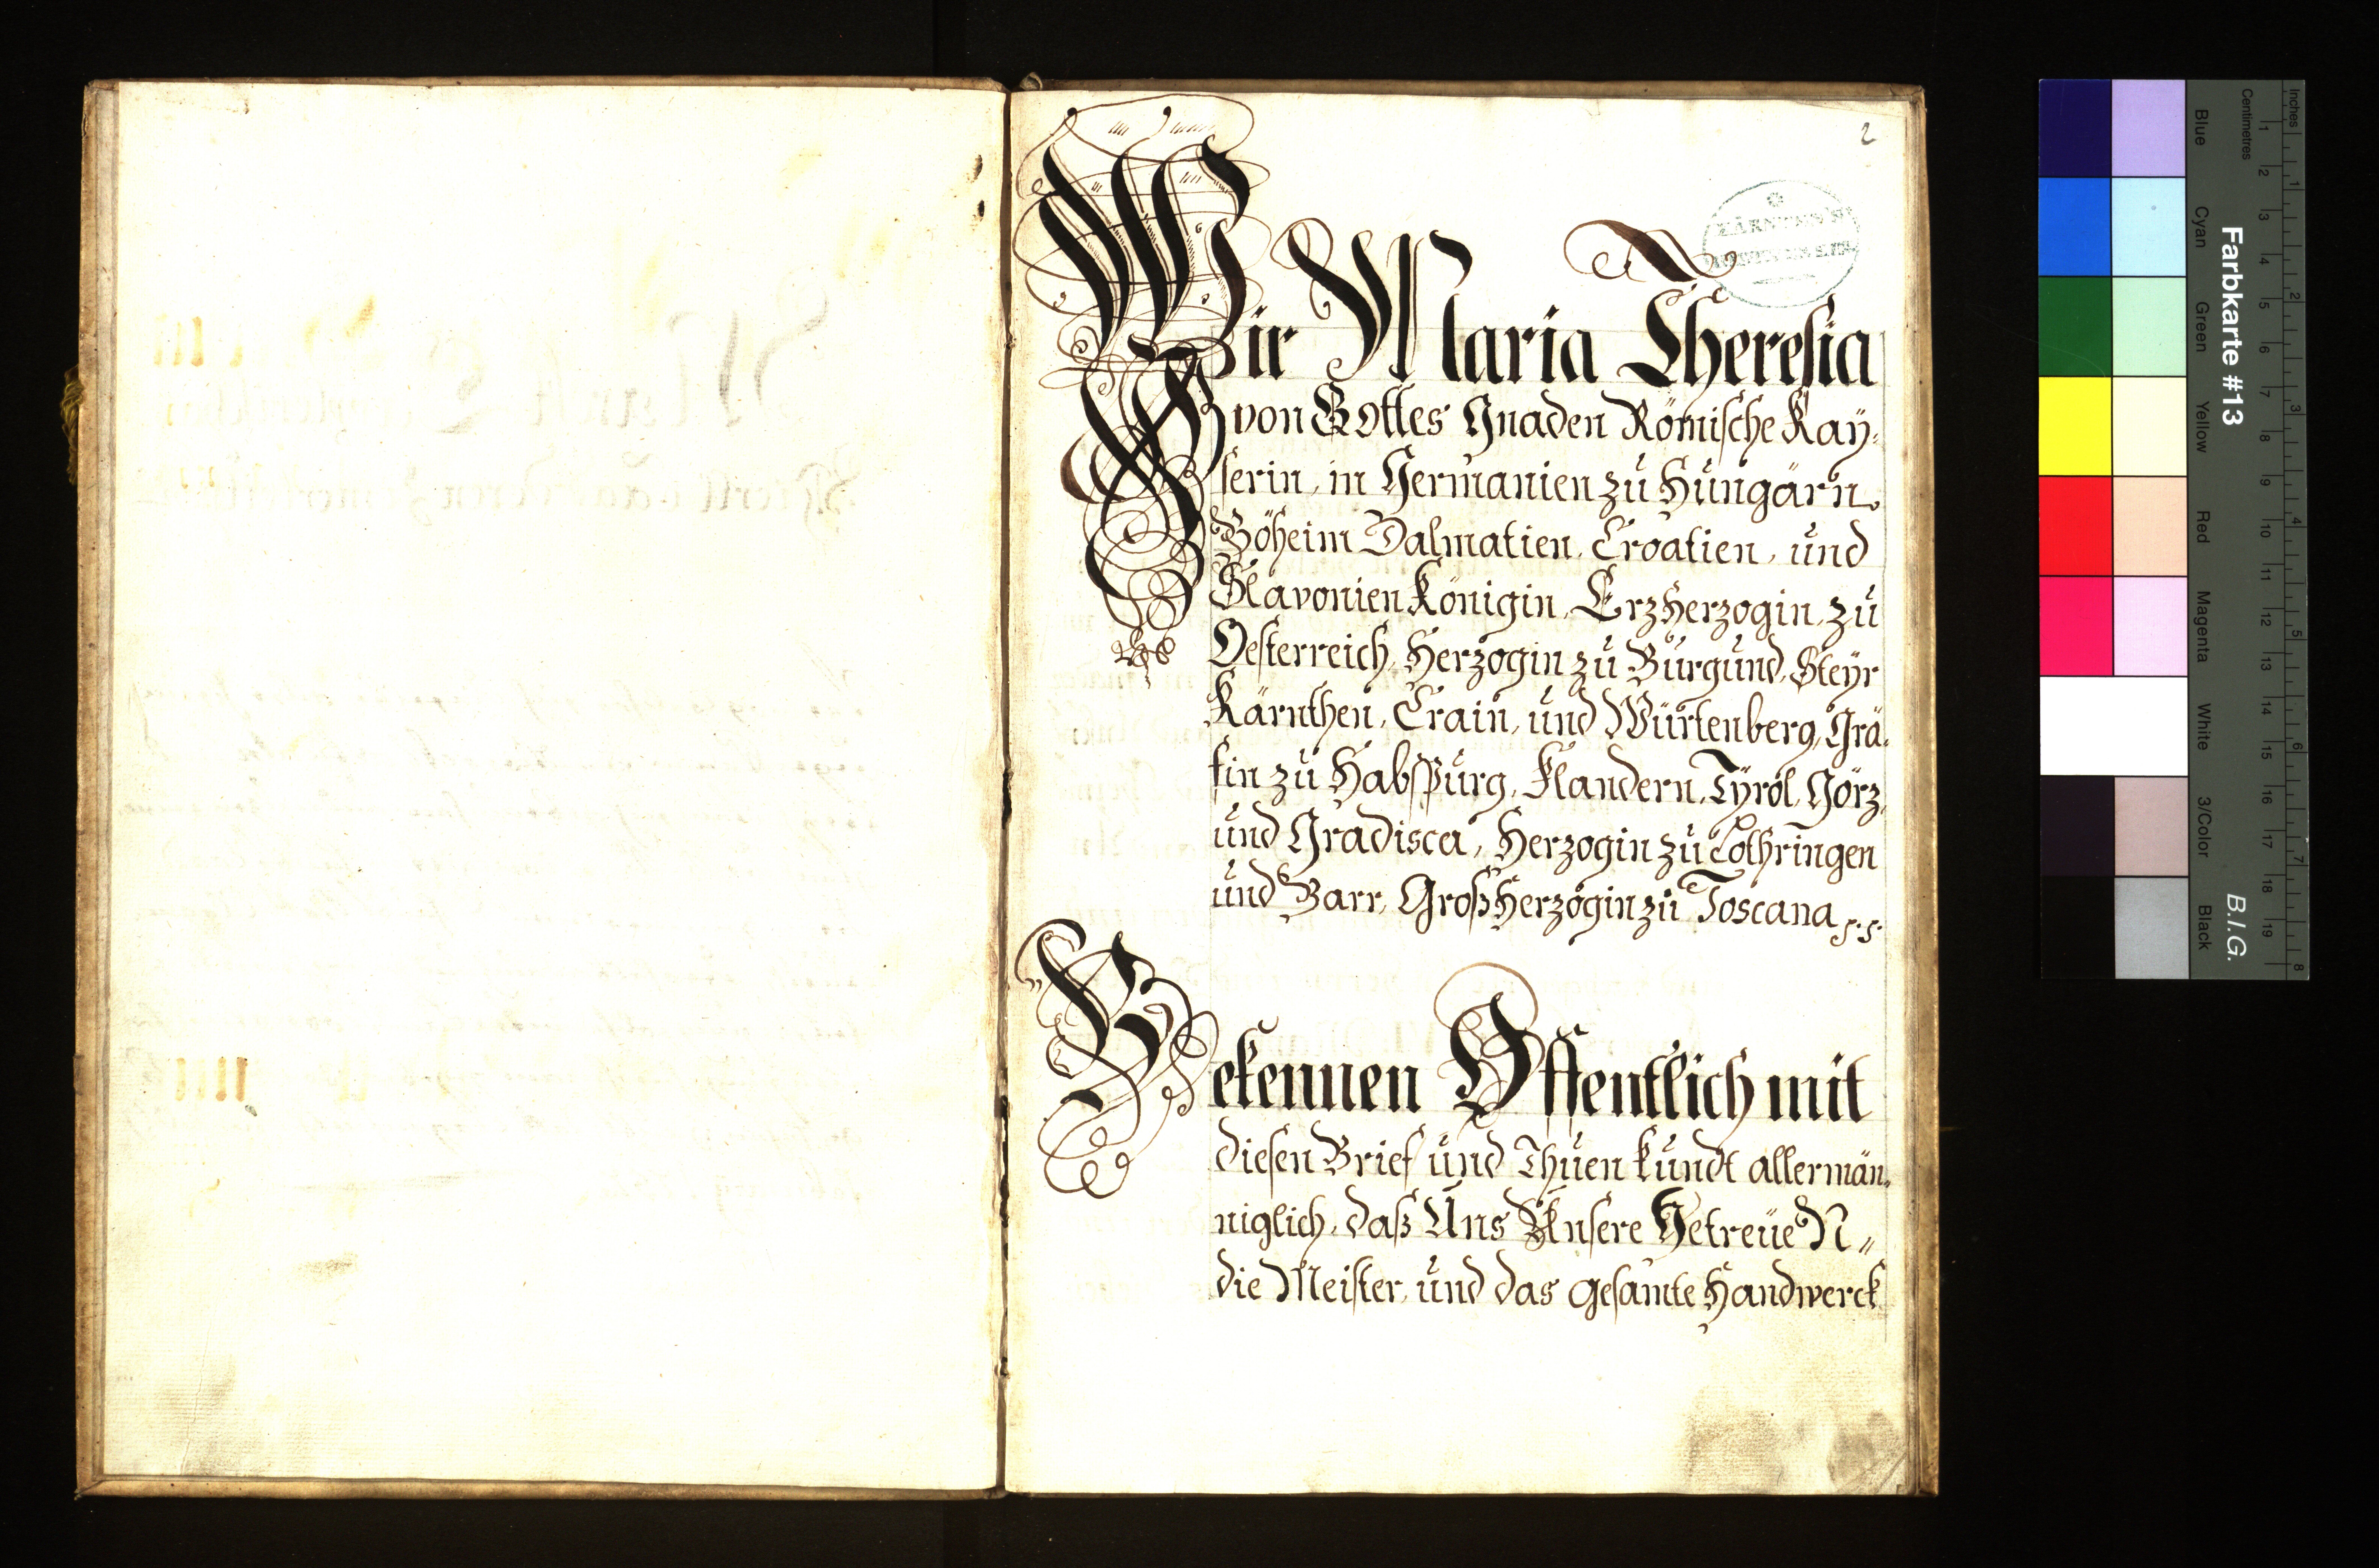 2
KÄRNTNER
Wir Maria Theresia
von Gottes Gnaden Römische Kaÿ-
serin, in Germanien zu Hungarn,
Böheim Dalmatien, Croatien, und
Slavonien Königin, ErzHerzogin, zu
Oesterreich, Herzogin zu Burgund, Steÿr
Kärnthen, Crain, und Würtenberg, Grä-
fin zu Habspurg, Flandern, Tÿrol, Görz,
und Gradisca, Herzogin zu Lothringen
und Barr, GroßHerzogin zu Toscana
Bekennen Öffentlich mit
diesen Brief und Thuen kundt allermän-
niglich, daß Uns Unsere Getreüe N"
die Meister, und das gesamte Handwerck
Farbkarte #13
B.I.G.
Centimetres
Inches
1 2 3 4 5 6 7 8 9 10 11 12 13 14 15 16 17 18 19
1 2 3 4 5 6 7 8
Blue
Cyan
Green
Yellow
Red
Magenta
White
3/Color
Black